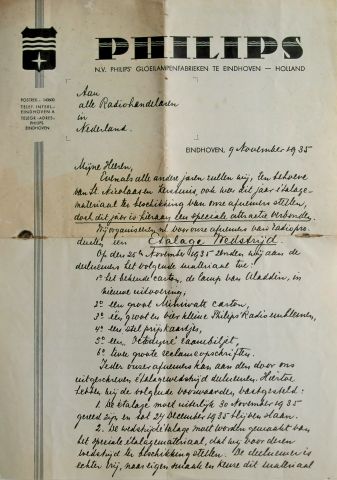 PHILIPS
N.V. PHILIPS' GLOEILAMPENFABRIEKEN TE EINDHOVEN — HOLLAND
POSTREK.: 140600
TELEF. INTERL.:
EINDHOVEN A
TELEGR.-ADRES:
PHILIPS,
EINDHOVEN.
Aan
alle Radiohandelaren
in
Nederland.
EINDHOVEN, 9 November 1935
Mijne Heeren,
Evenals alle andere jaren zullen wij, ten behoeve
van St. Nicolaas en Kerstmis, ook voor dit jaar étalage-
materiaal ter beschikking van onze afnemers stellen,
doch dit jaar is hieraan een speciale attractie verbonden.
Wij organiseeren nl. voor onze afnemers van radiopro-
ducten een Etalage Wedstrijd.
Op den 25sten November 1935 zenden wij aan de
deelnemers het volgende materiaal toe:
1e het bekende carton, de lamp van Aladdin, in
nieuwe uitvoering,
2e een groot Miniwatt carton,
3e een groot en vier kleine Philips Radio emblemen,
4e een stel prijskaartjes,
5e een "Octode" raambiljet,
6e twee groote reclameopschriften.
Ieder onzer afnemers kan aan den door ons
uitgeschreven étalagewedstrijd deelnemen. Hiertoe
hebben wij de volgende voorwaarden vastgesteld:
1. De étalage moet uiterlijk 30 November 1935
gereed zijn en tot 24 December 1935 blijven staan.
2. De wedstrijdétalage moet worden gemaakt van
het speciale étalagemateriaal, dat wij voor dezen
wedstrijd ter beschikking stellen. De deelnemer is
echter vrij, naar eigen smaak en keuze dit materiaal